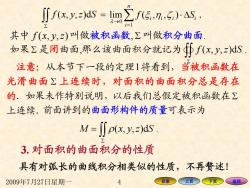 ∬_Σ f(x,y,z)dS = lim_{λ→0} ∑_{i=1}^{n} f(ξ_i,η_i,ζ_i)·ΔS_i ,
其中 f(x,y,z) 叫做被积函数,Σ 叫做积分曲面.
如果Σ是闭曲面,那么该曲面积分就记为 ∯_Σ f(x,y,z)dS .
注意: 从本节下一段的定理1将看到, 当被积函数在
光滑曲面Σ上连续时, 对面积的曲面积分总是存在
的. 如果未作特别说明, 以后我们总假定被积函数在Σ
上连续. 前面讲到的曲面形构件的质量可表示为
M = ∬_Σ ρ(x,y,z)dS .
3. 对面积的曲面积分的性质
具有对弧长的曲线积分相类似的性质, 不再赘述!
2009年7月27日星期一 4